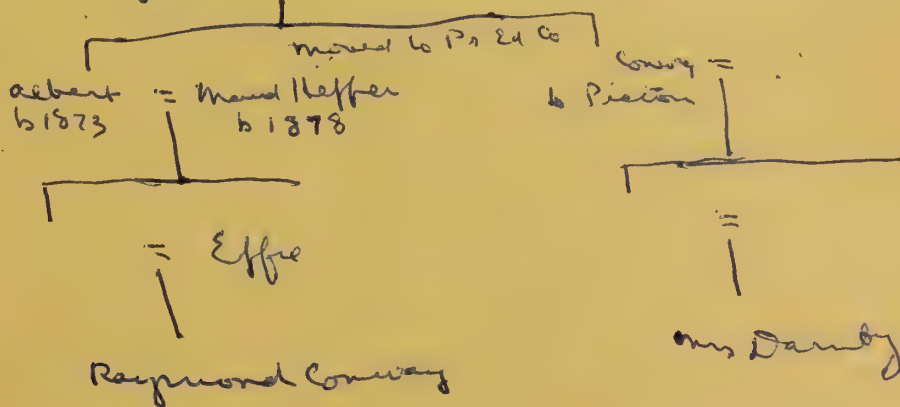 moved to Pr Ed Co
Albert = Maud Heffer
b 1873 b 1878
Conway =
b Picton
= Effie
=
Raymond Conway
Mrs Darnby